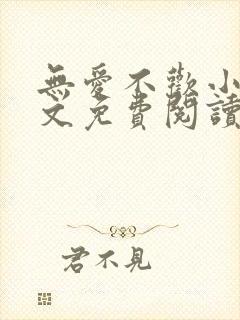 無愛不歡小
文免費閱讀
君不見